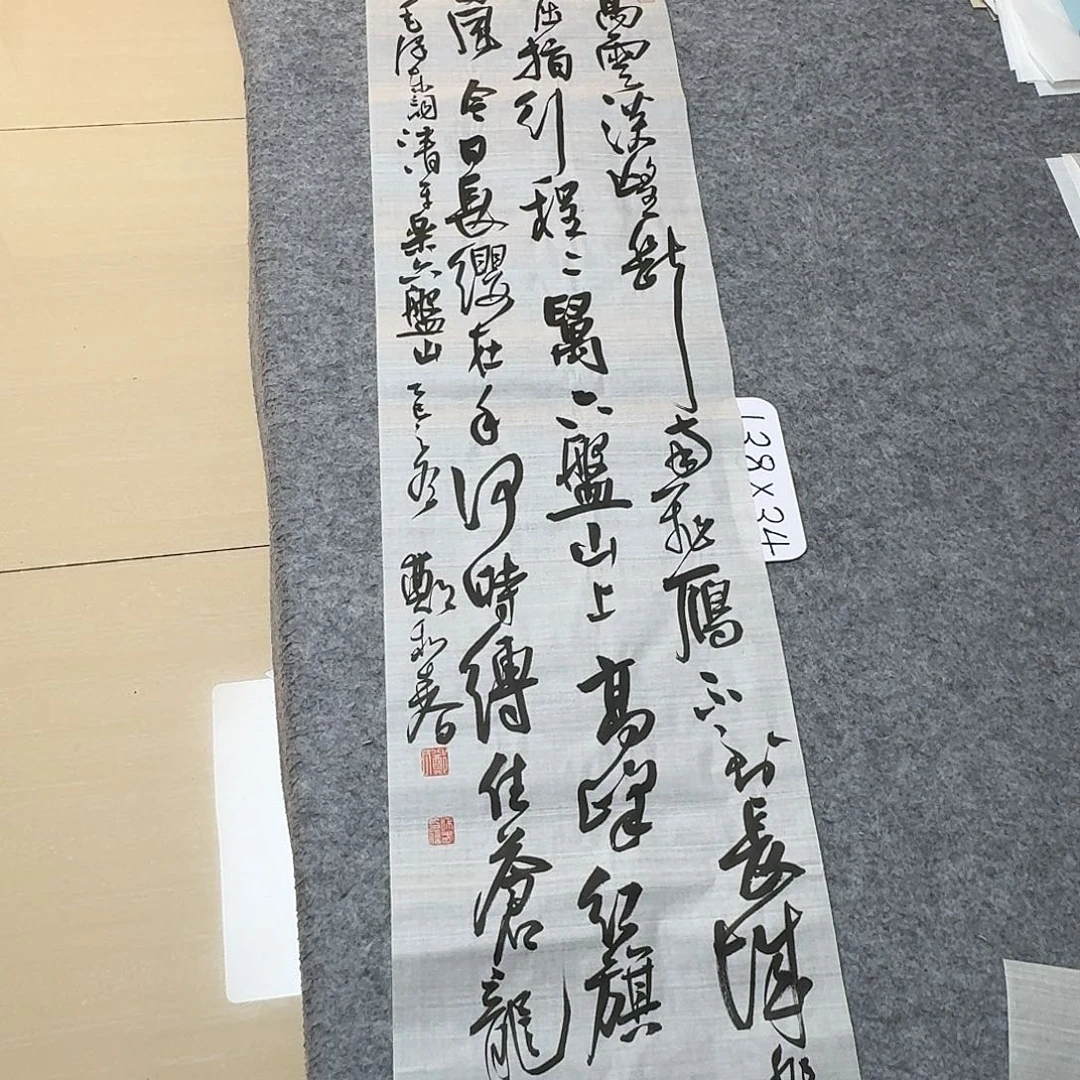 高雲淡望斷南飛雁不到長城
指行程二萬六盤山上高峰紅旗
風今日長纓在手何時縛住蒼龍
毛澤東詞清平樂六盤山乙巳 鄭春
128×34